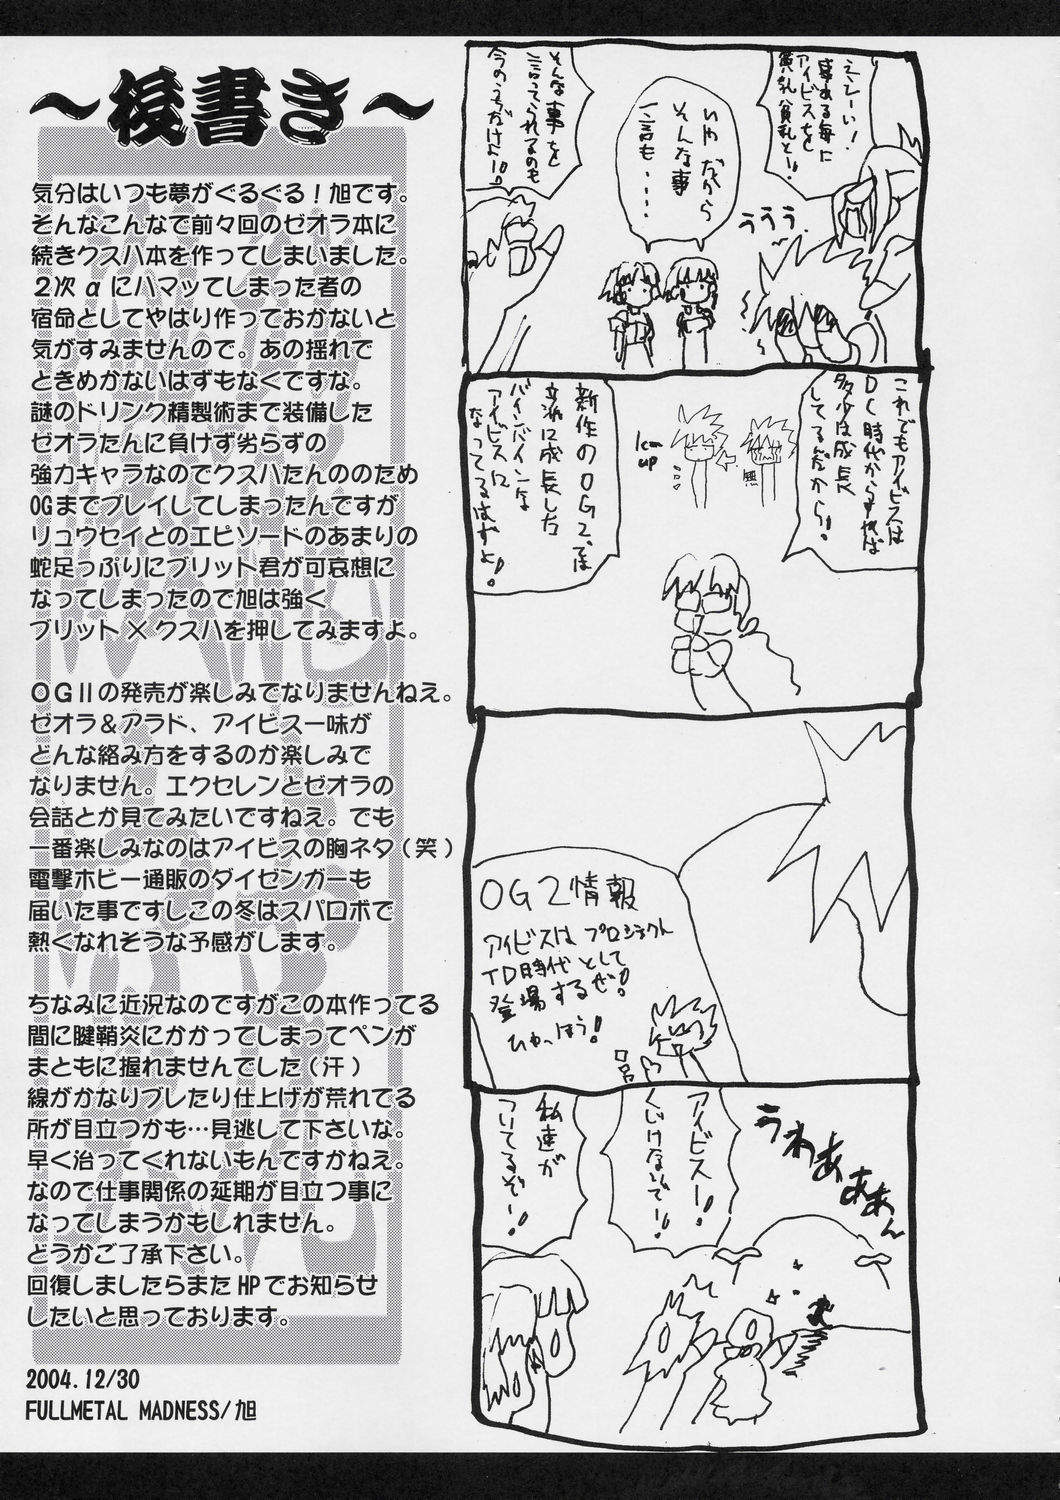 ～後書き～
気分はいつも夢がぐるぐる！旭です。
そんなこんなで前々回のゼオラ本に
続きクスハ本を作ってしまいました。
２次αにハマッてしまった者の
宿命としてやはり作っておかないと
気がすみませんので。あの揺れで
ときめかないはずもなくですな。
謎のドリンク精製術まで装備した
ゼオラたんに負けず劣らずの
強力キャラなのでクスハたんののため
OGまでプレイしてしまったんですが
リュウセイとのエピソードのあまりの
蛇足っぷりにブリット君が可哀想に
なってしまったので旭は強く
ブリット×クスハを押してみますよ。
ＯＧⅡの発売が楽しみでなりませんねえ。
ゼオラ＆アラド、アイビス一味が
どんな絡み方をするのか楽しみで
なりません。エクセレンとゼオラの
会話とか見てみたいですねえ。でも
一番楽しみなのはアイビスの胸ネタ（笑）
電撃ホビー通販のダイゼンガーも
届いた事ですしこの冬はスパロボで
熱くなれそうな予感がします。
ちなみに近況なのですがこの本作ってる
間に腱鞘炎にかかってしまってペンが
まともに握れませんでした（汗）
線がかなりブレたり仕上げが荒れてる
所が目立つかも…見逃して下さいな。
早く治ってくれないもんですかねえ。
なので仕事関係の延期が目立つ事に
なってしまうかもしれません。
どうかご了承下さい。
回復しましたらまたHPでお知らせ
したいと思っております。
2004.12/30
FULLMETAL MADNESS/旭
えーい！
事ある毎に
アイビスを
貧乳貧乳と！！
いや だから
そんな事
一言も・・・・
そんな事を
言ってられるのも
今のうちだけよ！！
ううう
これでもアイビスは
DC時代からすれば
多少は成長
してるんだから！
無
1cm
up
新作のOG2では
立派に成長した
バインバインな
アイビスに
なってるはずよ！
OG2情報
アイビスはプロジェクト
TD時代として
登場するぜ！
ひゃっほう！
うわあああん
アイビスー！
くじけないでー！
私達が
ついてるぞー！